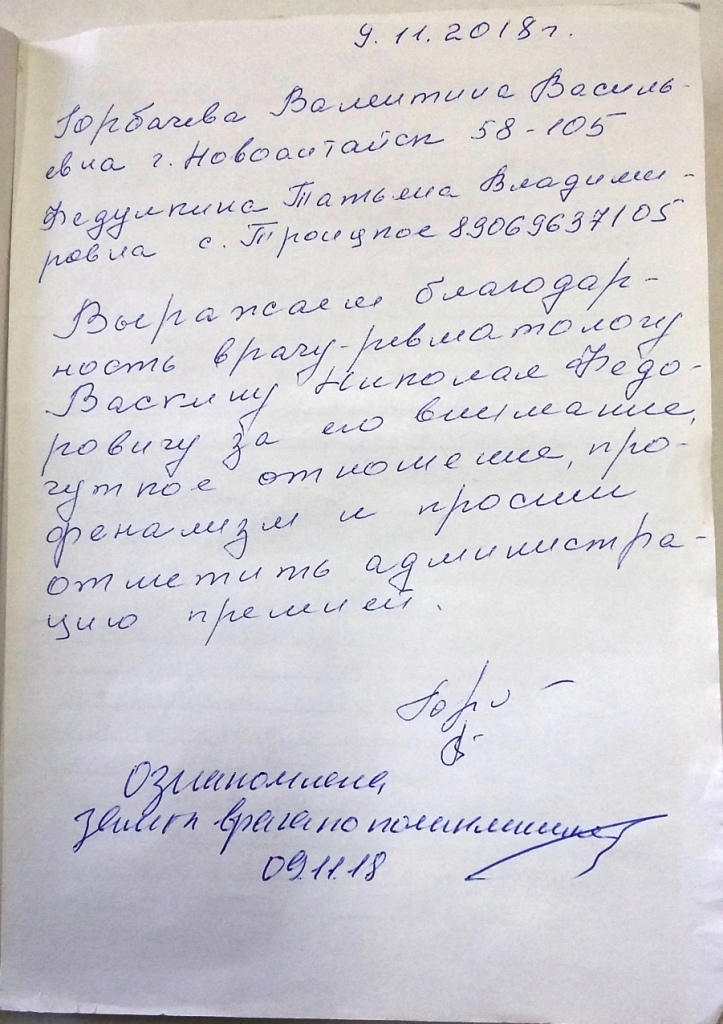 9.11.2018г.
Горбачева Валентина Василь-
евна г. Новоалтайск 58-105
Федулкина Татьяна Владими-
ровна с. Троицкое 89069637105
Выражаем благодар-
ность врачу-ревматологу
Васкину Николаю Федо-
ровичу за его внимание,
чуткое отношение, про-
фенализм и просим
отметить администра-
цию премией.
Ознакомлена
врача по поликлинике
09.11.18